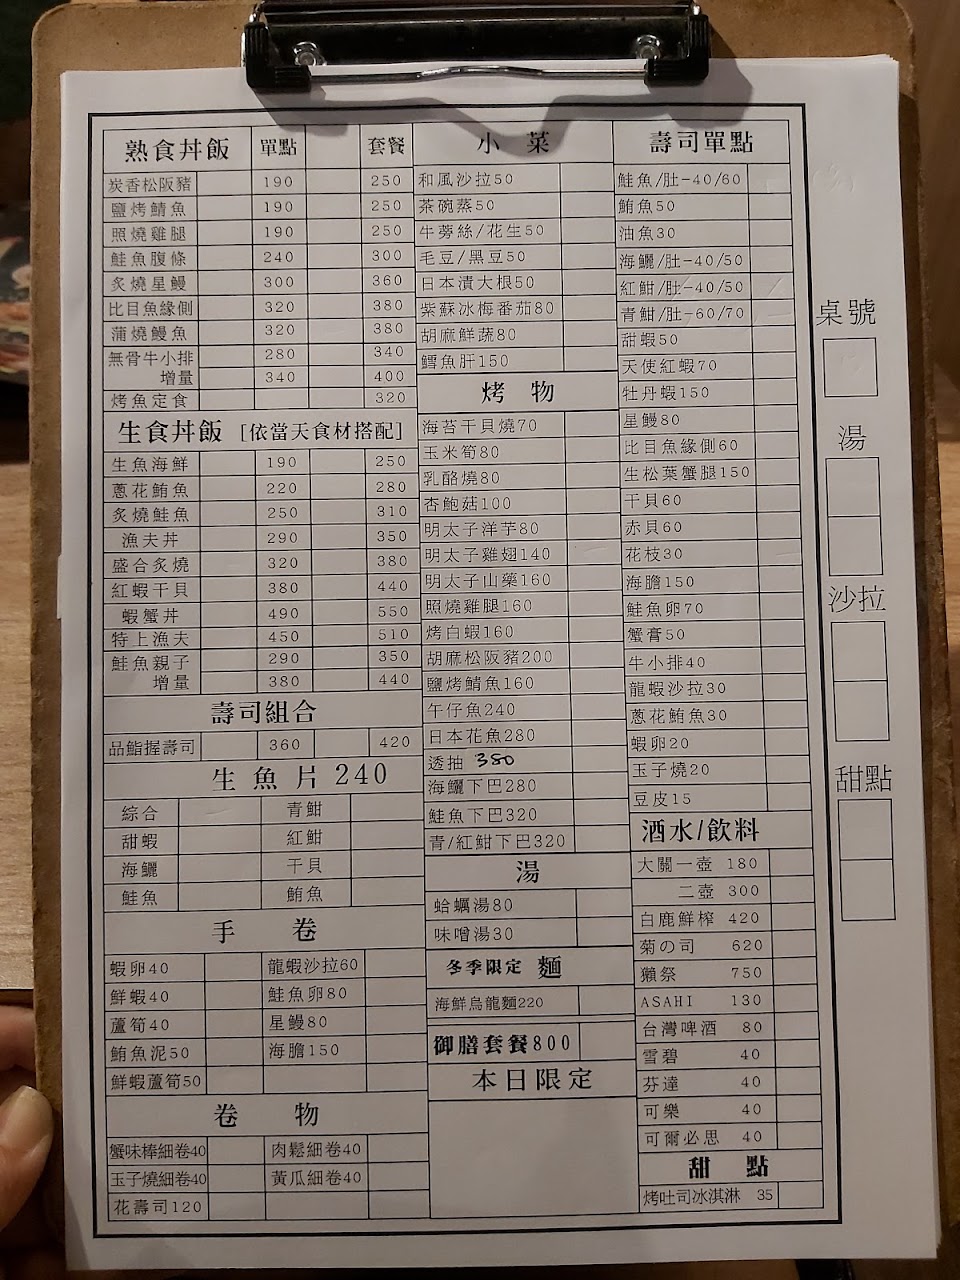 熟食丼飯 單點 套餐
炭香松阪豬 190 250
鹽烤鯖魚 190 250
照燒雞腿 190 250
鮭魚腹條 240 300
炙燒星鰻 300 360
比目魚緣側 320 380
蒲燒鰻魚 320 380
無骨牛小排 280 340
增量 340 400
烤魚定食 320
生食丼飯 [依當天食材搭配]
生魚海鮮 190 250
蔥花鮪魚 220 280
炙燒鮭魚 250 310
漁夫丼 290 350
盛合炙燒 320 380
紅蝦干貝 380 440
蝦蟹丼 490 550
特上漁夫 450 510
鮭魚親子 290 350
增量 380 440
壽司組合
品鮨握壽司 360 420
生魚片240
綜合 青魽
甜蝦 紅魽
海鱺 干貝
鮭魚 鮪魚
手 卷
蝦卵40 龍蝦沙拉60
鮮蝦40 鮭魚卵80
蘆筍40 星鰻80
鮪魚泥50 海膽150
鮮蝦蘆筍50
卷 物
蟹味棒細卷40 肉鬆細卷40
玉子燒細卷40 黃瓜細卷40
花壽司120
小 菜
和風沙拉50
茶碗蒸50
牛蒡絲/花生50
毛豆/黑豆50
日本漬大根50
紫蘇冰梅番茄80
胡麻鮮蔬80
鱈魚肝150
烤 物
海苔干貝燒70
玉米筍80
乳酪燒80
杏鮑菇100
明太子洋芋80
明太子雞翅140
明太子山藥160
照燒雞腿160
烤白蝦160
胡麻松阪豬200
鹽烤鯖魚160
午仔魚240
日本花魚280
透抽 380
海鱺下巴280
鮭魚下巴320
青/紅魽下巴320
湯
蛤蠣湯80
味噌湯30
冬季限定 麵
海鮮烏龍麵220
御膳套餐800
本日限定
壽司單點
鮭魚/肚-40/60
鮪魚50
油魚30
海鱺/肚-40/50
紅魽/肚-40/50
青魽/肚-60/70
甜蝦50
天使紅蝦70
牡丹蝦150
星鰻80
比目魚緣側60
生松葉蟹腿150
干貝60
赤貝60
花枝30
海膽150
鮭魚卵70
蟹膏50
牛小排40
龍蝦沙拉30
蔥花鮪魚30
蝦卵20
玉子燒20
豆皮15
酒水/飲料
大關一壺 180
二壺 300
白鹿鮮榨 420
菊の司 620
獺祭 750
ASAHI 130
台灣啤酒 80
雪碧 40
芬達 40
可樂 40
可爾必思 40
甜 點
烤吐司冰淇淋 35
桌號
湯
沙拉
甜點